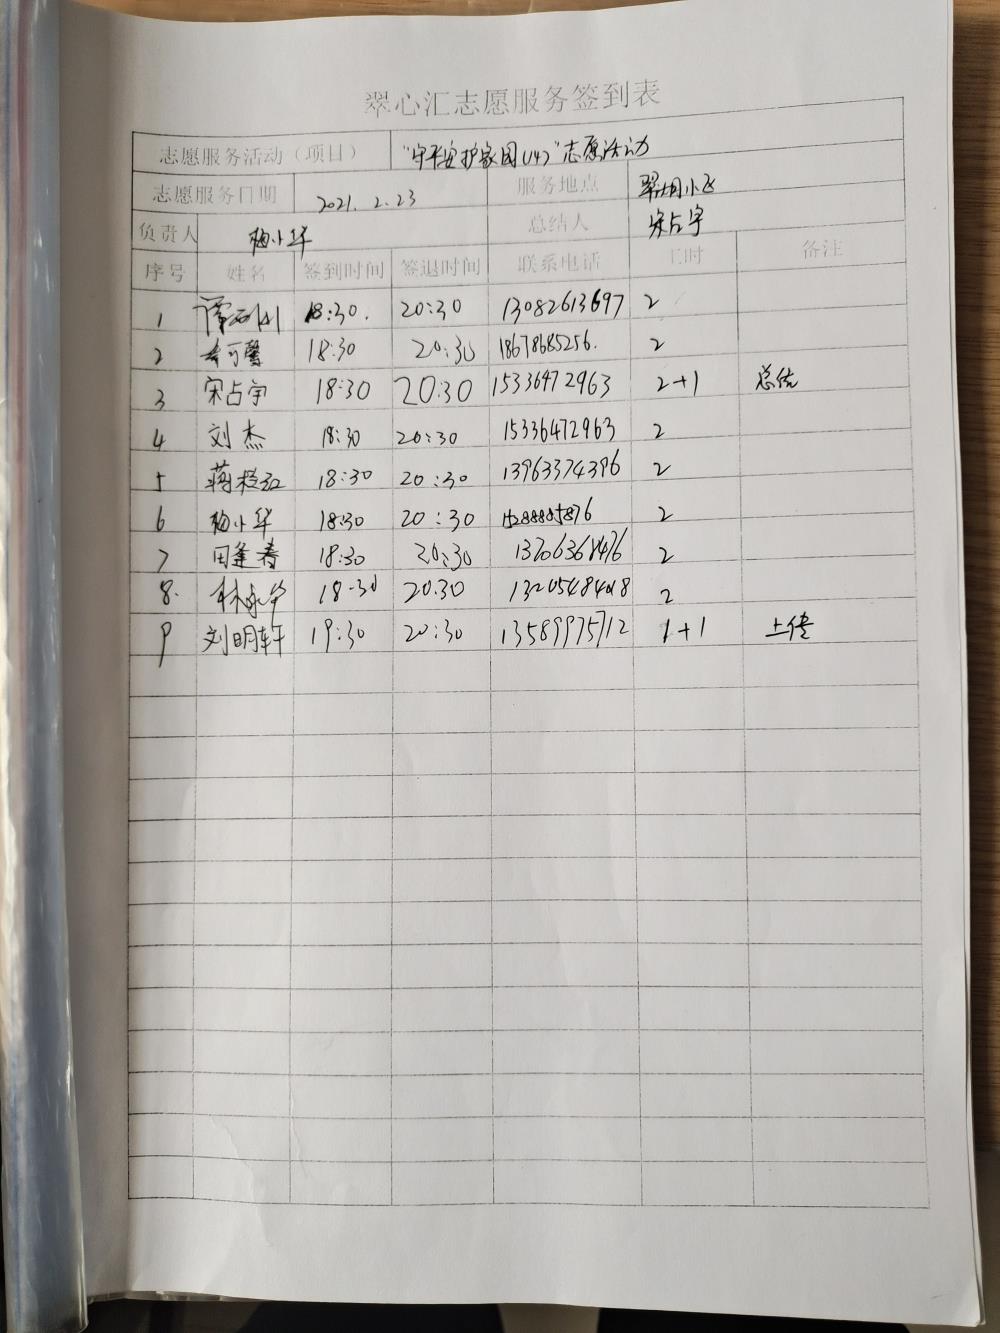 翠心汇志愿服务签到表
志愿服务活动（项目） “守平安护家园(14)”志愿活动
志愿服务日期 2021.2.23 服务地点 翠湖小区
负责人 梅小华 总结人 宋占宇
序号 姓名 签到时间 签退时间 联系电话 工时 备注
1 18:30. 20:30 13082613697 2
2 可馨 18:30 20:30 18678685256. 2
3 宋占宇 18:30 20:30 15336472963 2+1 总结
4 刘杰 18:30 20:30 15336472963 2
5 蒋 红 18:30 20:30 13963374396 2
6 梅小华 18:30 20:30 15288885876 2
7 田逢春 18:30 20:30 13706368476 2
8. 林永华 18:30 20:30 2
9 刘明轩 19:30 20:30 13589975712 1+1 上传